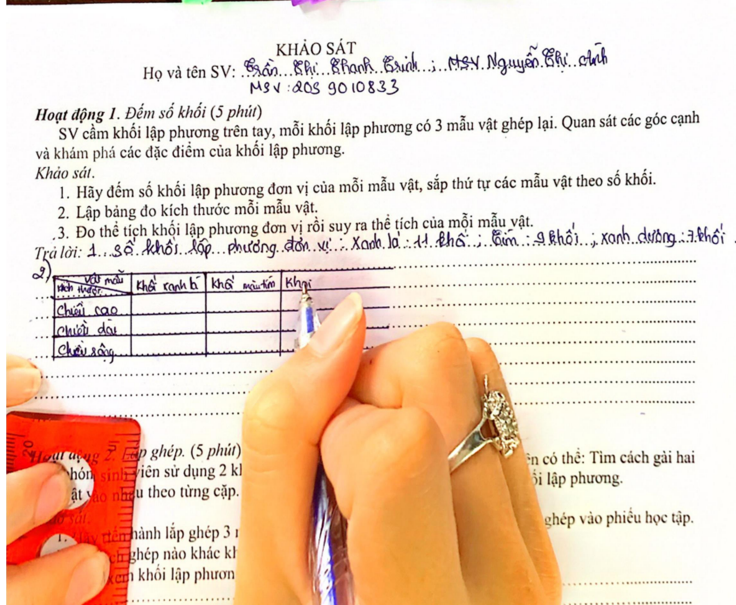 KHẢO SÁT
Họ và tên SV: Trần Thị Thanh Trinh ; MSV. Nguyễn Thị
MSV : 205 9010833
Hoạt động 1. Đếm số khối (5 phút)
SV cầm khối lập phương trên tay, mỗi khối lập phương có 3 mẫu vật ghép lại. Quan sát các góc cạnh
và khám phá các đặc điểm của khối lập phương.
Khảo sát.
1. Hãy đếm số khối lập phương đơn vị của mỗi mẫu vật, sắp thứ tự các mẫu vật theo số khối.
2. Lập bảng đo kích thước mỗi mẫu vật.
3. Đo thể tích khối lập phương đơn vị rồi suy ra thể tích của mỗi mẫu vật.
Trả lời: 1. Số khối lập phương đơn vị : Xanh lá : 11 khối ; Tím : 9 khối ; xanh dương : 7 khối
2) Vật mẫu Khối xanh b Khối màu tím Khối
Kích thước
Chiều cao
Chiều dài
Chiều rộng
20
Hoạt động 2. Lắp ghép. (5 phút)
sinh viên sử dụng 2 ên có thể: Tìm cách gài hai
vào nhau theo từng cặp. lập phương.
hành lắp ghép 3 ghép vào phiếu học tập.
ghép nào khác
khối lập phươn